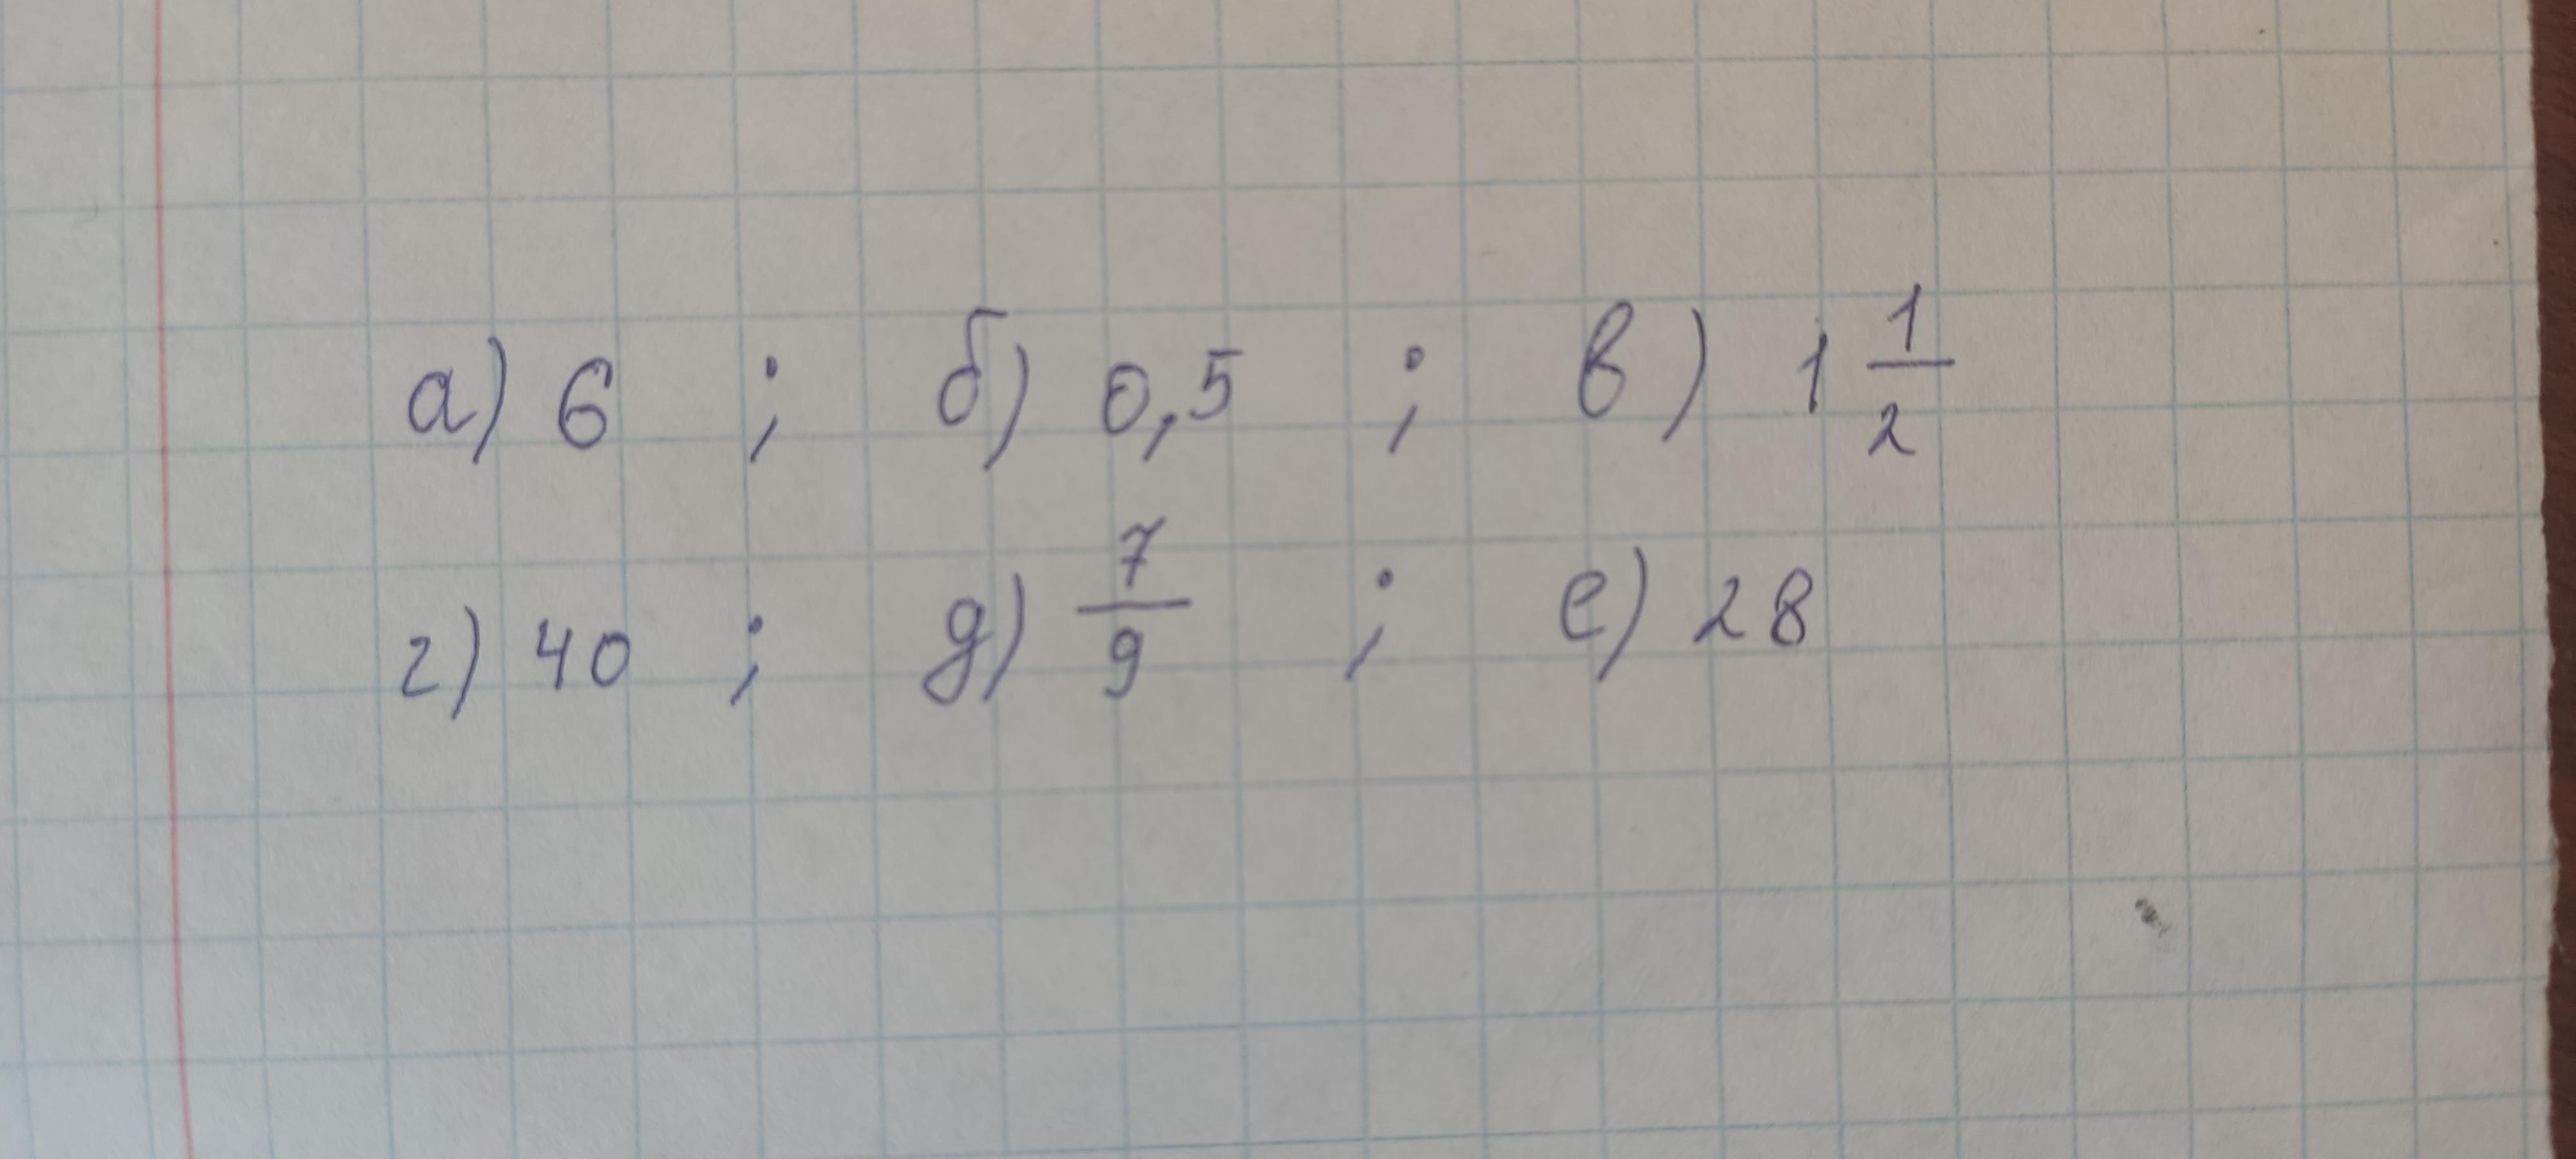 а) 6 ; б) 0,5 ; в) 1 1/2
г) 40 ; д) 7/9 ; е) 28